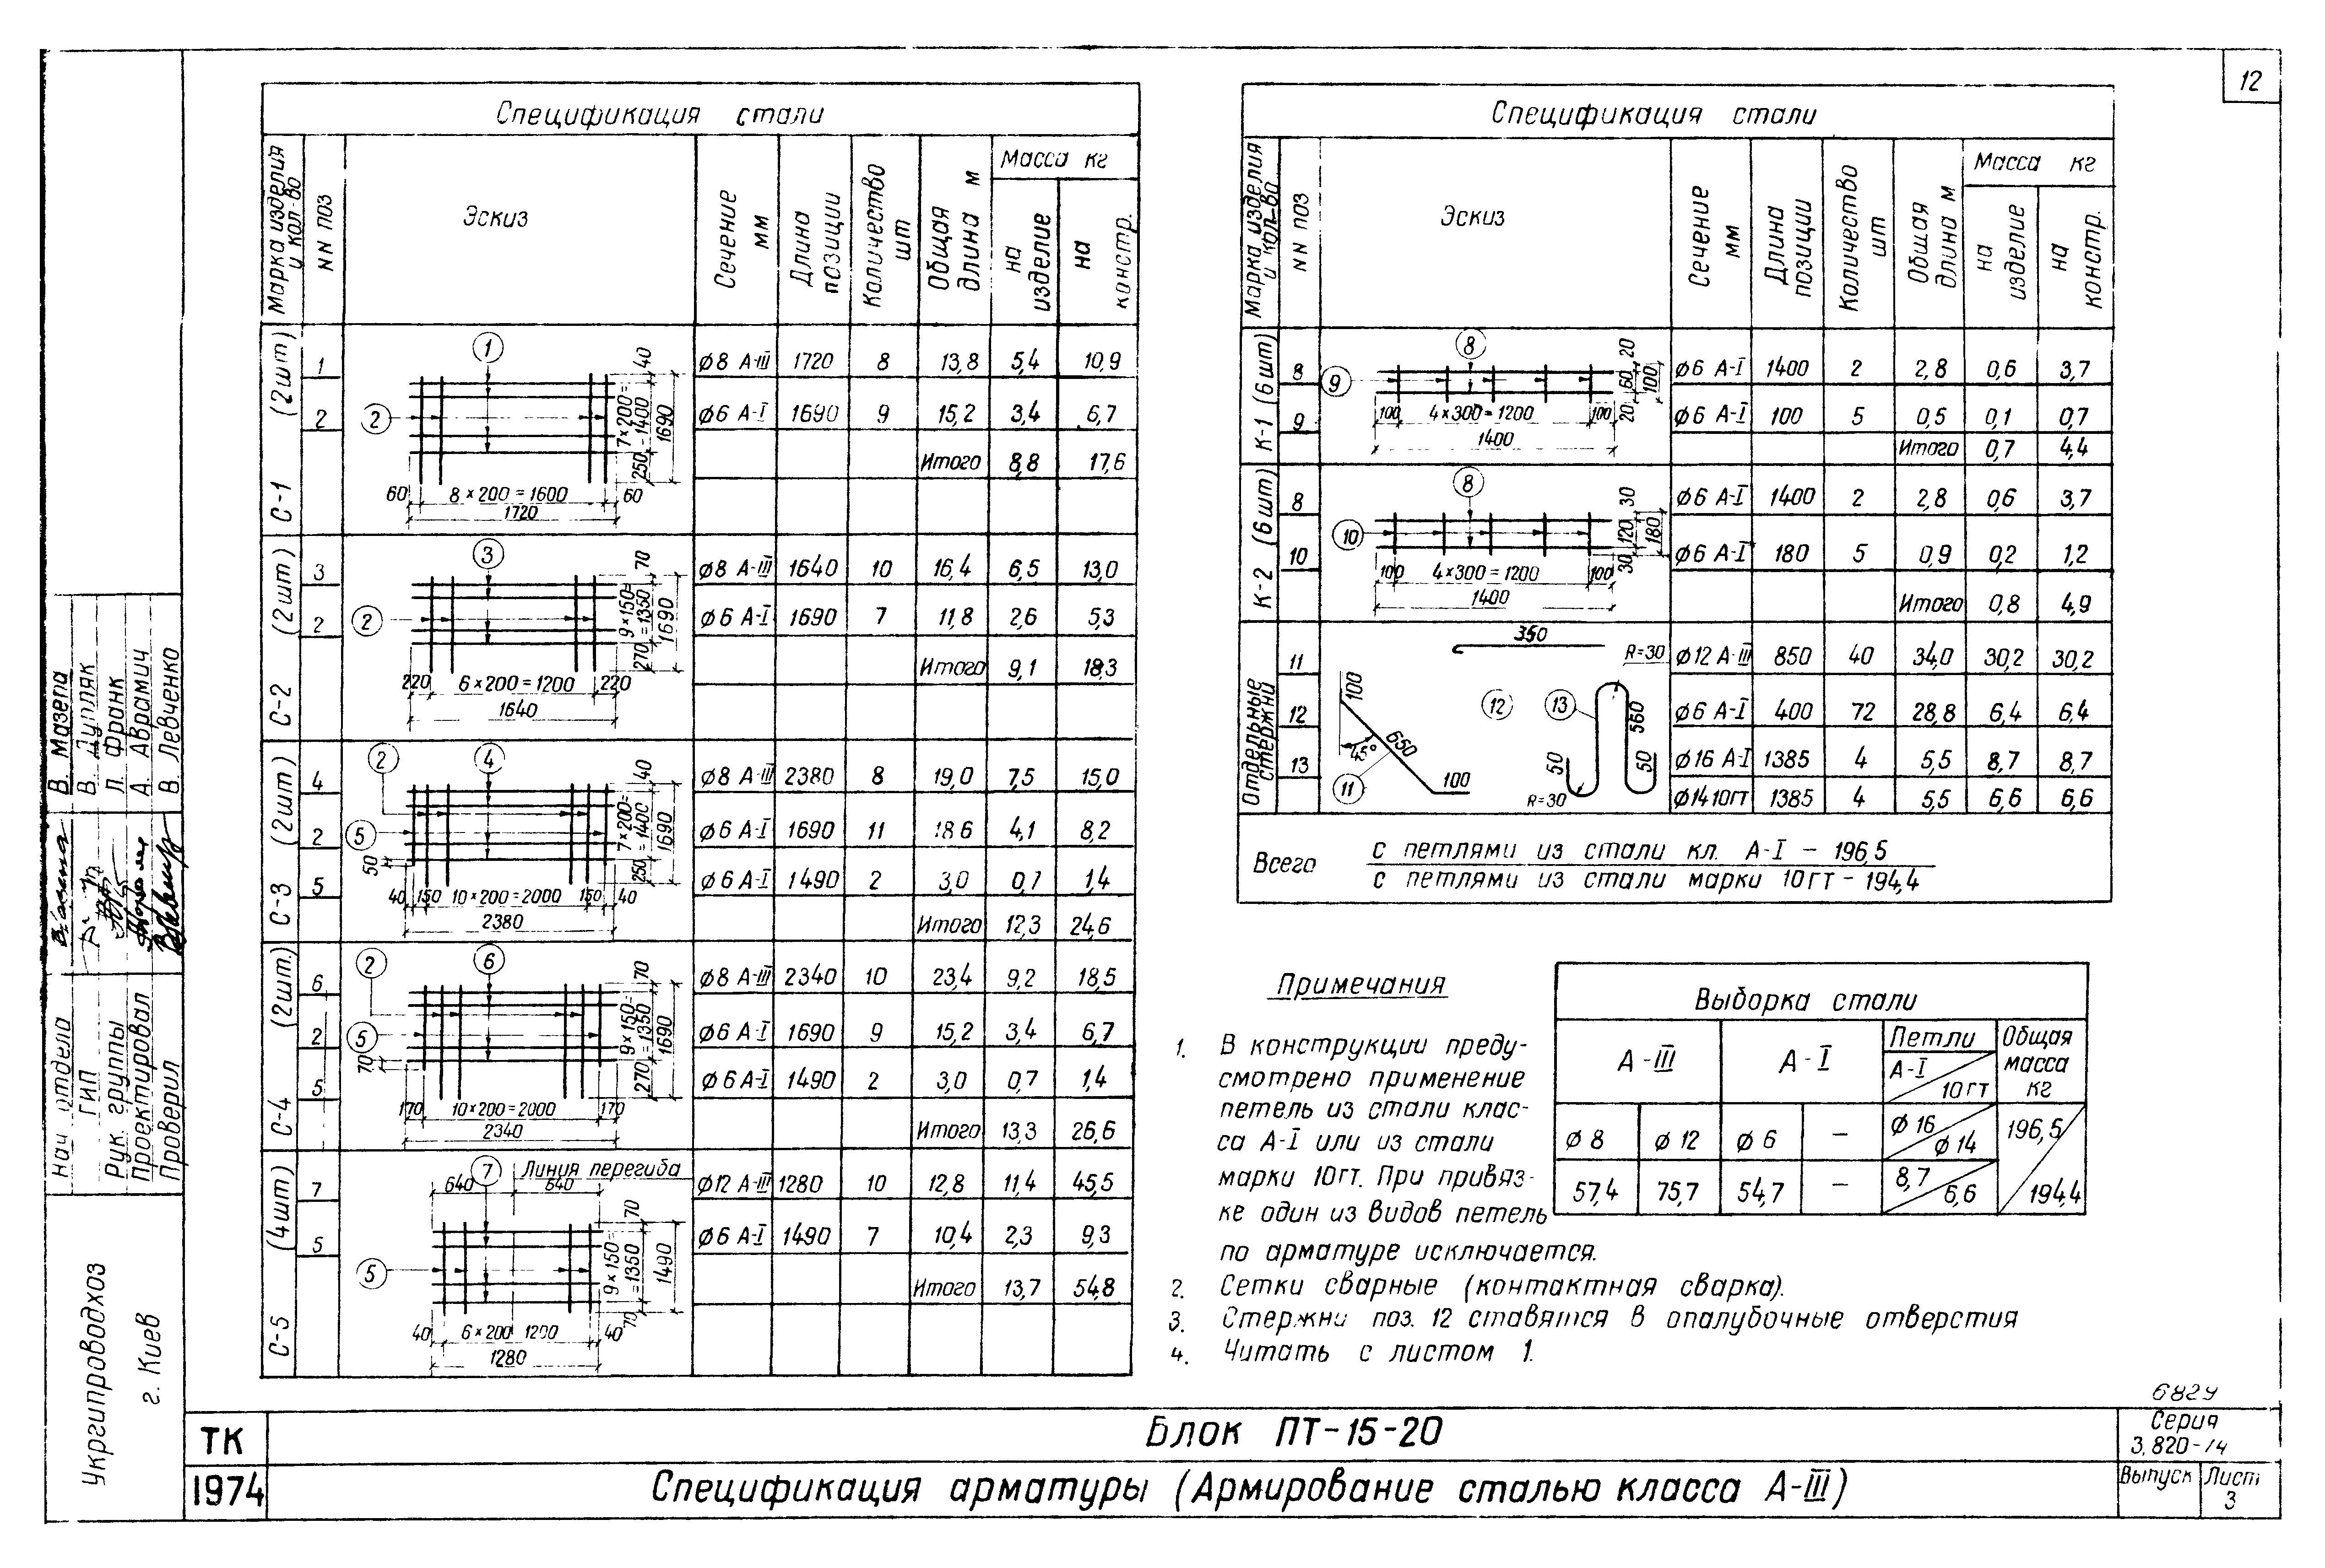 12
Спецификация стали
Марка изделия и кол-во
NN поз
Эскиз
Сечение мм
Длина позиции
Количество шт
Общая длина м
Масса кг
на изделие
на констр.
С-1 (2шт)
1 ø8 А-III 1720 8 13,8 5,4 10,9
2 ø6 А-I 1690 9 15,2 3,4 6,7
Итого 8,8 17,6
1
2
60 8×200=1600 60
1720
40
7×200=1400
250
1690
С-2 (2шт)
3 ø8 А-III 1640 10 16,4 6,5 13,0
2 ø6 А-I 1690 7 11,8 2,6 5,3
Итого 9,1 18,3
3
2
220 6×200=1200 220
1640
70
9×150=1350
270
1690
С-3 (2шт)
4 ø8 А-III 2380 8 19,0 7,5 15,0
2 ø6 А-I 1690 11 18,6 4,1 8,2
5 ø6 А-I 1490 2 3,0 0,7 1,4
Итого 12,3 24,6
2
4
5
50
40 150 10×200=2000 150 40
2380
40
7×200=1400
250
1690
С-4 (2шт.)
6 ø8 А-III 2340 10 23,4 9,2 18,5
2 ø6 А-I 1690 9 15,2 3,4 6,7
5 ø6 А-I 1490 2 3,0 0,7 1,4
Итого 13,3 26,6
2
6
5
70
170 10×200=2000 170
2340
70
9×150=1350
270
1690
С-5 (4шт)
7 ø12 А-III 1280 10 12,8 11,4 45,5
5 ø6 А-I 1490 7 10,4 2,3 9,3
Итого 13,7 54,8
7
Линия перегиба
640 640
5
40 6×200 1200 40
1280
70
9×150=1350
70
1490
Спецификация стали
Марка изделия и кол-во
NN поз
Эскиз
Сечение мм
Длина позиции
Количество шт
Общая длина м
Масса кг
на изделие
на констр.
К-1 (6шт)
8 ø6 А-I 1400 2 2,8 0,6 3,7
9 ø6 А-I 100 5 0,5 0,1 0,7
Итого 0,7 4,4
8
9
100 4×300=1200 100
1400
20 60 20
100
К-2 (6шт)
8 ø6 А-I 1400 2 2,8 0,6 3,7
10 ø6 А-I 180 5 0,9 0,2 1,2
Итого 0,8 4,9
8
10
100 4×300=1200 100
1400
30 120 30
180
Отдельные стержни
11 ø12 А-III 850 40 34,0 30,2 30,2
12 ø6 А-I 400 72 28,8 6,4 6,4
13 ø16 А-I 1385 4 5,5 8,7 8,7
ø14 10ГТ 1385 4 5,5 6,6 6,6
350
R=30
100
45°
650
100
11
12
13
560
50
50
R=30
Всего
с петлями из стали кл. А-I – 196,5
с петлями из стали марки 10ГТ – 194,4
Примечания
1. В конструкции преду-
смотрено применение
петель из стали клас-
са А-I или из стали
марки 10ГТ. При привяз-
ке один из видов петель
по арматуре исключается.
2. Сетки сварные (контактная сварка).
3. Стержни поз. 12 ставятся в опалубочные отверстия
4. Читать с листом 1.
Выборка стали
А-III А-I Петли А-I 10ГТ Общая масса кг
ø8 ø12 ø6 – ø16 ø14 196,5
57,4 75,7 54,7 – 8,7 6,6 194,4
6829
ТК
1974
Блок ПТ-15-20
Спецификация арматуры (Армирование сталью класса А-III)
Серия
3.820-14
Выпуск
Лист
3
Нач отдела В. Мазепа
ГИП В. Дупляк
Рук. группы Л. Франк
Проектировал А. Аврамич
Проверил В. Левченко
Укргипроводхоз
г. Киев